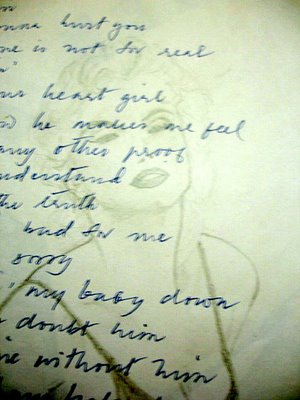 hurt you
is not for real
heart girl
he makes me feel
any other proof
understand
the truth
bad for me
sorry
my baby down
doubt him
without him